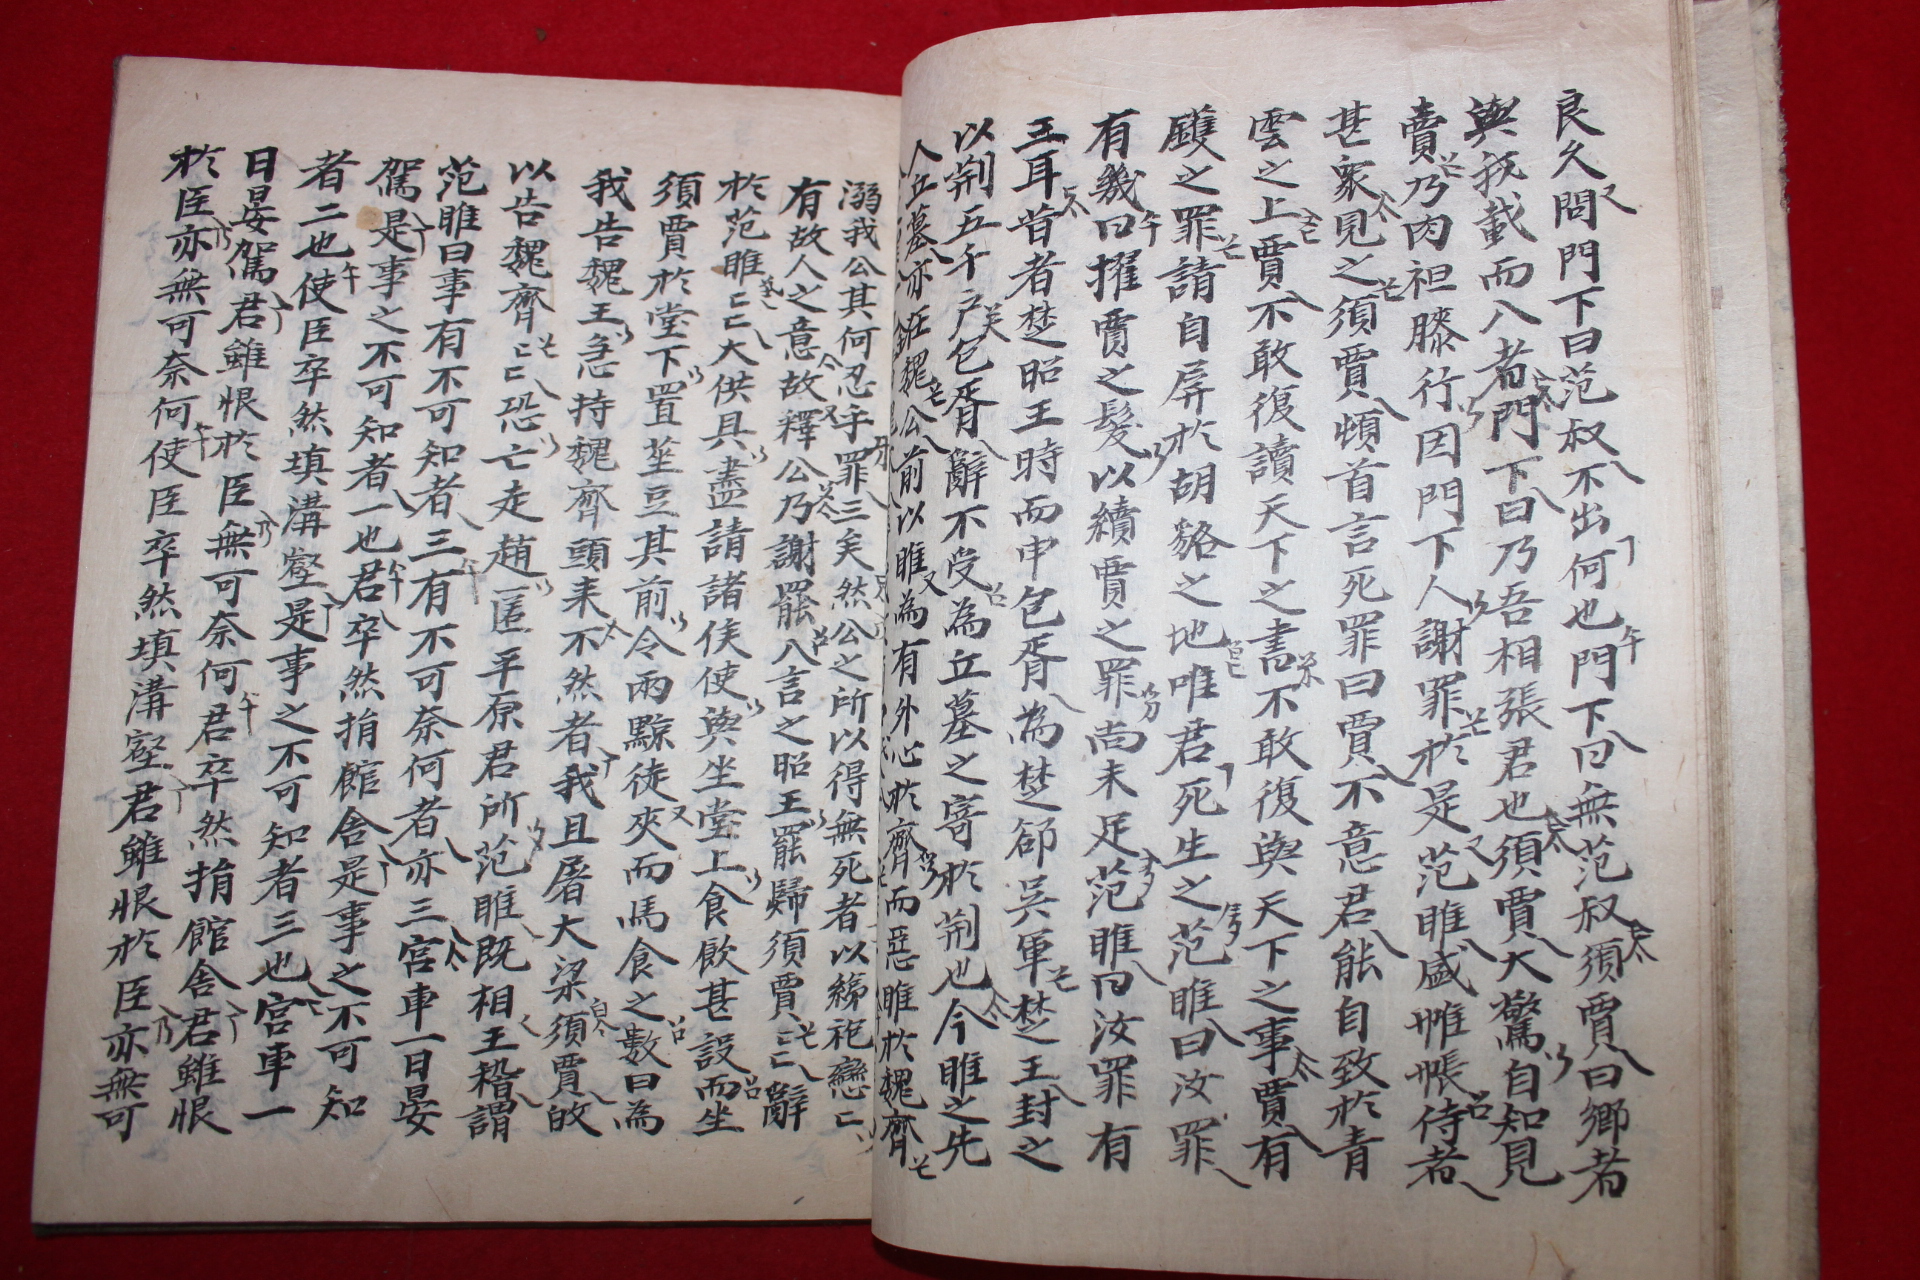 良久問門下曰范叔不出何也門下曰無范叔須賈曰鄕者
與我載而入者門下曰乃吾相張君也須賈大驚自知見
賣乃肉袒膝行因門下人謝罪於是范睢盛帷帳侍者
甚衆見之須賈頓首言死罪曰賈不意君能自致於青
雲之上賈不敢復讀天下之書不敢復與天下之事賈有
鑊之罪請自屛於胡貉之地唯君死生之范睢曰汝罪
有幾曰擢賈之髮以續賈之罪尙未足范睢曰汝罪有
三耳昔者楚昭王時而申包胥為楚郤吳軍楚王封之
以荊五千戶包胥辭不受為丘墓之寄於荊也今睢之先
人丘墓亦在魏公前以睢為有外心於齊而惡睢於魏齊
溺我公其何忍乎罪三矣然公之所以得無死者以綈袍戀〻
有故人之意故釋公乃謝罷入言之昭王罷歸須賈〻〻辭
於范睢〻〻大供具盡請諸侯使與坐堂上食飮甚設而坐
須賈於堂下置莝豆其前令兩黥徒夾而馬食之數曰為
我告魏王急持魏齊頭來不然者我且屠大梁須賈皈
以告魏齊〻〻恐亡走趙匿平原君所范睢既相王稽謂
范睢曰事有不可知者三有不可奈何者亦三宮車一日晏
駕是事之不可知者一也君卒然捐館舍是事之不可知
者二也使臣卒然塡溝壑是事之不可知者三也宮車一
日晏駕君雖恨於臣無可奈何君卒然捐館舍君雖恨
於臣亦無可奈何使臣卒然塡溝壑君雖恨於臣亦無可